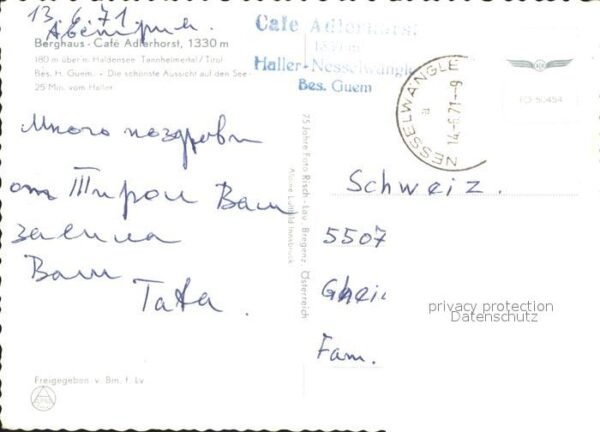 13.6.71
Австрија.
Berghaus - Café Adlerhorst, 1330 m
180 m über n. Haldensee Tannheimertal / Tirol
Bes. H. Guem. • Die schönste Aussicht auf den See
25 Min. vom Haller
Cafe Adlerhorst
1330 m
Haller-Nesselwängle
Bes. Guem
NESSELWÄNGLE
14-6.71-9
a
Много поздрави
от Тирол Вам
Ваш
Тата.
75 Jahre Foto Risch-Lau, Bregenz, Österreich
Alpine Luftbild Innsbruck
Schweiz.
5507
Fam.
privacy protection
Datenschutz
Freigegeben v. Bm. f. Lv